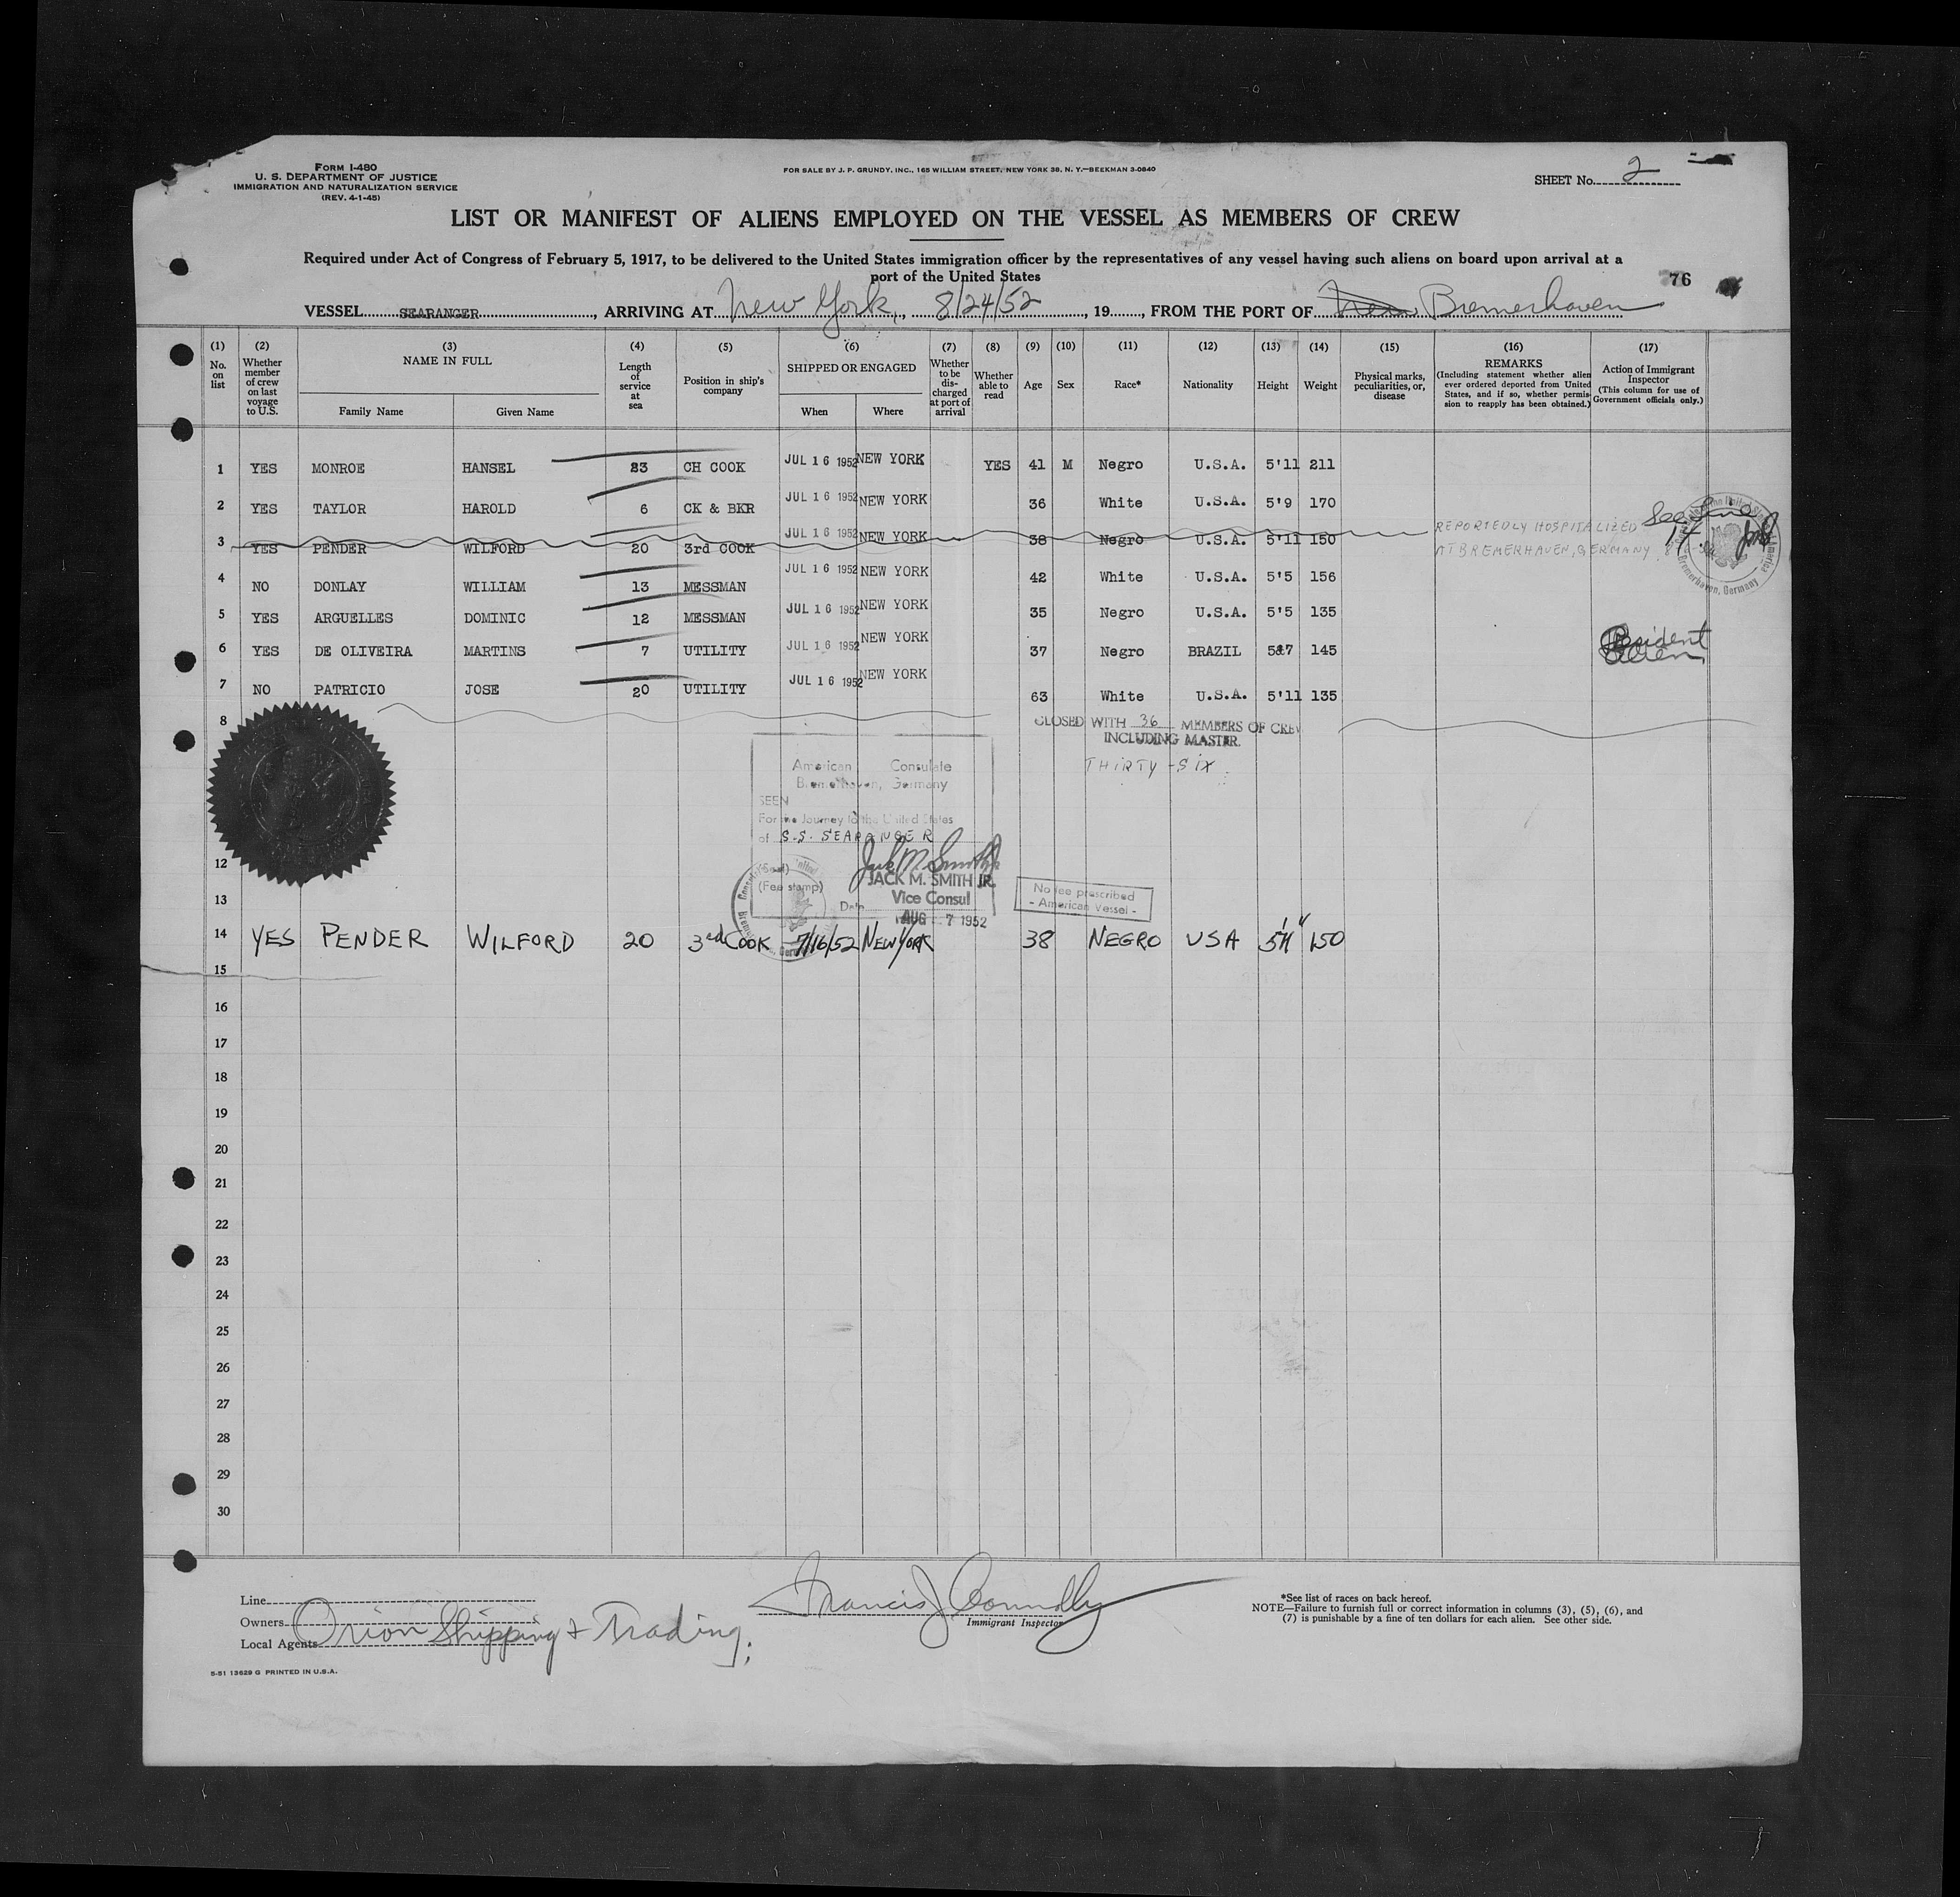 FORM I-480
U. S. DEPARTMENT OF JUSTICE
IMMIGRATION AND NATURALIZATION SERVICE
(REV. 4-1-45)
FOR SALE BY J. P. GRUNDY, INC., 165 WILLIAM STREET, NEW YORK 38, N. Y.—BEEKMAN 3-0840
SHEET No. 2
LIST OR MANIFEST OF ALIENS EMPLOYED ON THE VESSEL AS MEMBERS OF CREW
Required under Act of Congress of February 5, 1917, to be delivered to the United States immigration officer by the representatives of any vessel having such aliens on board upon arrival at a
port of the United States
76
VESSEL SEARANGER, ARRIVING AT New York, 8/24/52, 19, FROM THE PORT OF Bremerhaven
(1) (2) (3) (4) (5) (6) (7) (8) (9) (10) (11) (12) (13) (14) (15) (16) (17)
No. on list
Whether member of crew on last voyage to U.S.
NAME IN FULL
Family Name
Given Name
Length of service at sea
Position in ship's company
SHIPPED OR ENGAGED
When
Where
Whether to be discharged at port of arrival
Whether able to read
Age
Sex
Race*
Nationality
Height
Weight
Physical marks, peculiarities, or, disease
REMARKS
(Including statement whether alien ever ordered deported from United States, and if so, whether permission to reapply has been obtained.)
Action of Immigrant Inspector
(This column for use of Government officials only.)
1 YES MONROE HANSEL 23 CH COOK JUL 16 1952 NEW YORK YES 41 M Negro U.S.A. 5'11 211
2 YES TAYLOR HAROLD 6 CK & BKR JUL 16 1952 NEW YORK 36 White U.S.A. 5'9 170
3 YES PENDER WILFORD 20 3rd COOK JUL 16 1952 NEW YORK 38 Negro U.S.A. 5'11 150 REPORTEDLY HOSPITALIZED AT BREMERHAVEN, GERMANY See line 14
4 NO DONLAY WILLIAM 13 MESSMAN JUL 16 1952 NEW YORK 42 White U.S.A. 5'5 156
5 YES ARGUELLES DOMINIC 12 MESSMAN JUL 16 1952 NEW YORK 35 Negro U.S.A. 5'5 135
6 YES DE OLIVEIRA MARTINS 7 UTILITY JUL 16 1952 NEW YORK 37 Negro BRAZIL 5'7 145 Resident Alien
7 NO PATRICIO JOSE 20 UTILITY JUL 16 1952 NEW YORK 63 White U.S.A. 5'11 135
8
CLOSED WITH 36 MEMBERS OF CREW
INCLUDING MASTER.
THIRTY-SIX
American Consulate
Bremerhaven, Germany
SEEN
For the Journey to the United States
of S.S. SEARANGER
(Seal)
(Fee stamp)
Jack M. Smith Jr.
JACK M. SMITH JR.
Vice Consul
Date AUG 7 1952
No fee prescribed
- American Vessel -
12
13
14 YES PENDER WILFORD 20 3rd COOK 7/16/52 NEW YORK 38 NEGRO USA 5'11" 150
15
16
17
18
19
20
21
22
23
24
25
26
27
28
29
30
Line
Owners
Local Agents
Orion Shipping & Trading
Francis J. Connolly
Immigrant Inspector
*See list of races on back hereof.
NOTE—Failure to furnish full or correct information in columns (3), (5), (6), and
(7) is punishable by a fine of ten dollars for each alien. See other side.
5-51 13629 G PRINTED IN U.S.A.